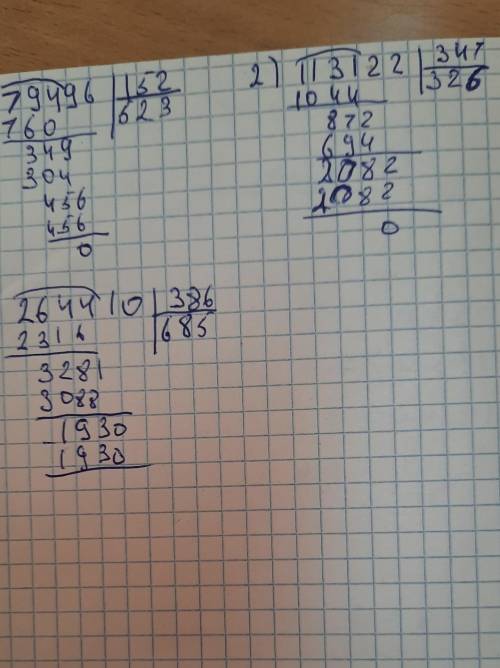 79496 | 152
760 | 523
349
304
456
456
0
2) 113122 | 347
1044 | 326
872
694
2082
2082
0
264410 | 386
2316 | 685
3281
3088
1930
1930